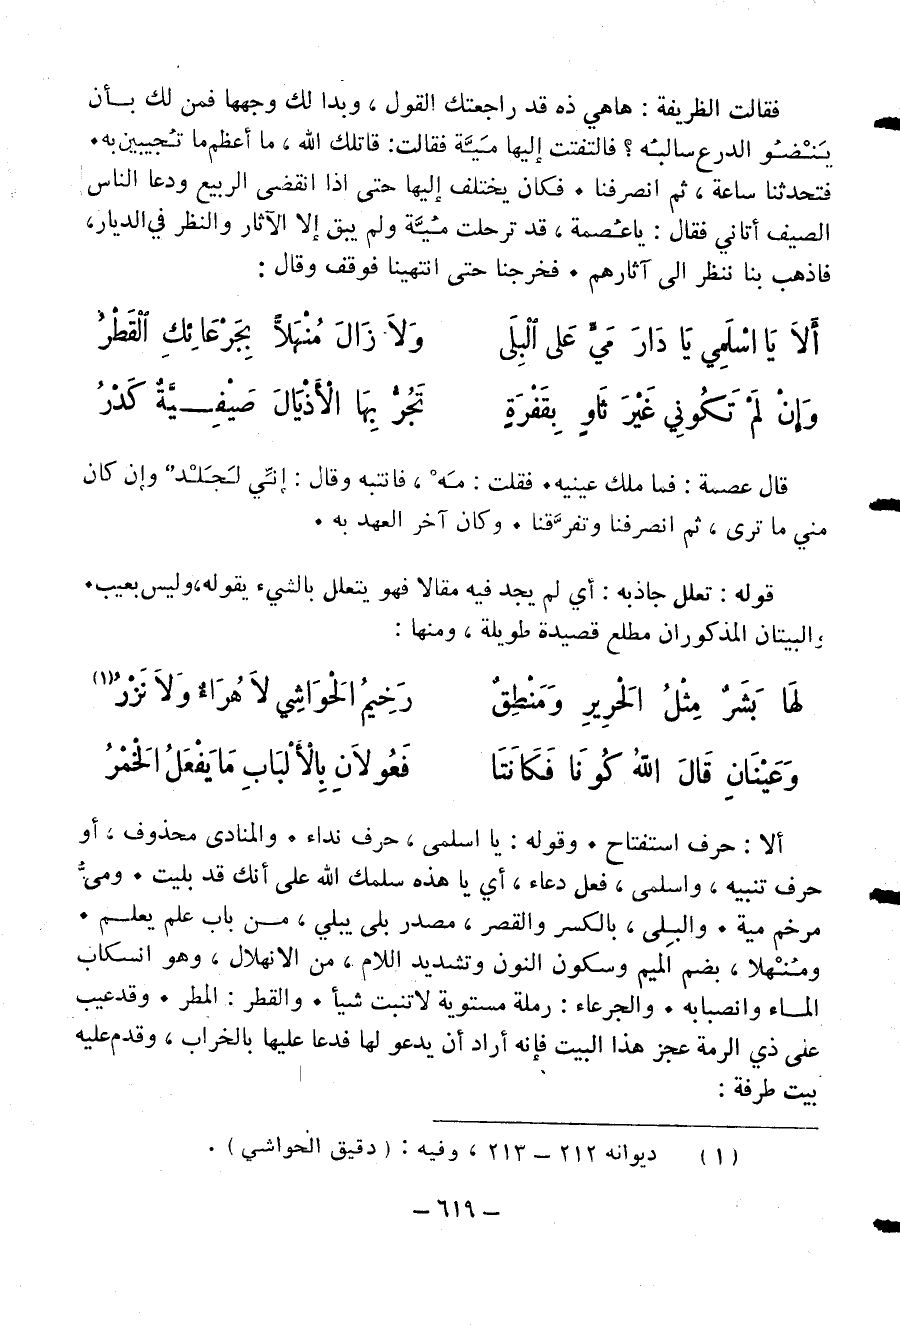 فقالت الظريفة : هاهي ذه قد راجعتك القول ، وبدا لك وجهها فمن لك بــأن
يَنْضُو الدرع سالبُه ؟ فالتفتت إليها مَيَّة فقالت : قاتلك الله ، ما أعظم ما تُجيبين به .
فتحدثنا ساعة ، ثم انصرفنا . فكان يختلف إليها حتى اذا انقضى الربيع ودعا الناس
الصيف أتاني فقال : ياعُصمة ، قد ترحلت مَيَّة ولم يبق إلا الآثار والنظر في الديار ،
فاذهب بنا ننظر الى آثارهم . فخرجنا حتى انتهينا فوقف وقال :
أَلاَ يَا اسْلَمِي يَا دَارَ مَيٍّ عَلَى الْبِلَى وَلاَ زَالَ مُنْهَلاًّ بِجَرْعَائِكِ الْقَطْرُ
وَإِنْ لَمْ تَكُونِي غَيْرَ ثَاوٍ بِقَفْرَةٍ تَجُرُّ بِهَا الْأَذْيَالَ صَيْفِــيَّةٌ كَدْرُ
قال عصمة : فما ملك عينيه . فقلت : مَه° ، فانتبه وقال : إنّي لَجَلْد وإن كان
مني ما ترى ، ثم انصرفنا وتفرَّقنا . وكان آخر العهد به .
قوله : تعلل جاذبه : أي لم يجد فيه مقالا فهو يتعلل بالشيء يقوله، وليس بعيب .
والبيتان المذكوران مطلع قصيدة طويلة ، ومنها :
لَهَا بَشَرٌ مِثْلُ الْحَرِيرِ وَمَنْطِقٌ رَخِيمُ الْحَوَاشِي لاَ هُرَاءٌ وَلاَ نَزْرُ (١)
وَعَيْنَانِ قَالَ اللهُ كُونَا فَكَانَتَا فَعُولاَنِ بِالْأَلْبَابِ مَا يَفْعَلُ الْخَمْرُ
ألا : حرف استفتاح . وقوله : يا اسلمى ، حرف نداء . والمنادى محذوف ، أو
حرف تنبيه ، واسلمى ، فعل دعاء ، أي يا هذه سلمك الله على أنك قد بليت . وميُّ
مرخم مية . والبِلى ، بالكسر والقصر ، مصدر بلى يبلي ، مــن باب علم يعلــم .
ومُنْهلا ، بضم الميم وسكون النون وتشديد اللام ، من الانهلال ، وهو انسكاب
المــاء وانصبابه . والجرعاء : رملة مستوية لاتنبت شيأ . والقطر : المطر . وقدعيب
على ذي الرمة عجز هذا البيت فإنه أراد أن يدعو لها فدعا عليها بالخراب ، وقدم عليه
بيت طرفة :
(١) ديوانه ٢١٢ – ٢١٣ ، وفيه : (دقيق الحواشي) .
– ٦١٩ –